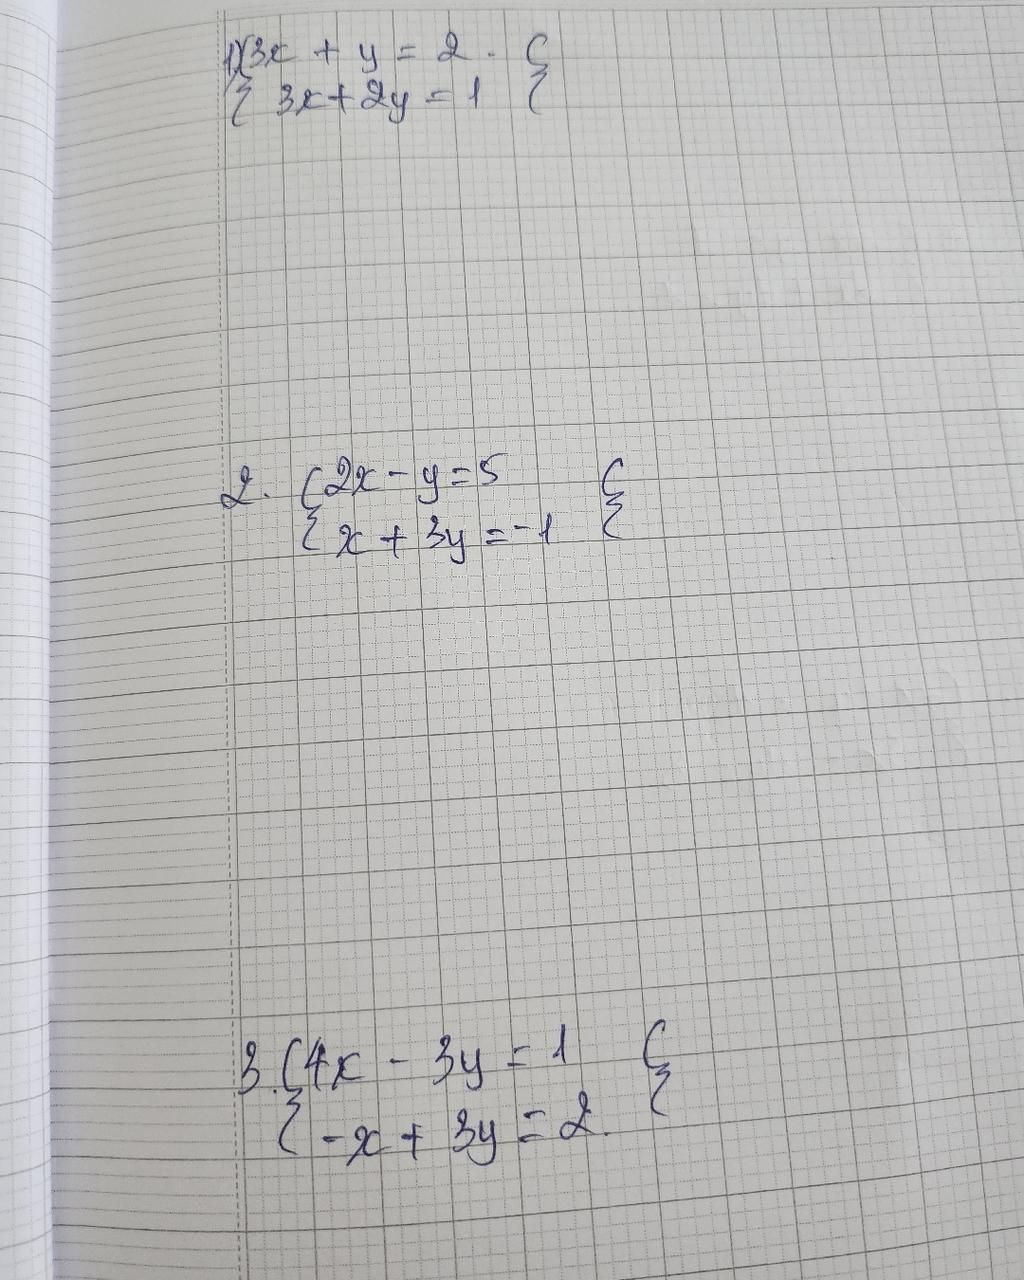 1) { 3x + y = 2. {
3x + 2y = 1
2. { 2x - y = 5 {
x + 3y = -1
3. { 4x - 3y = 1 {
-x + 3y = 2.